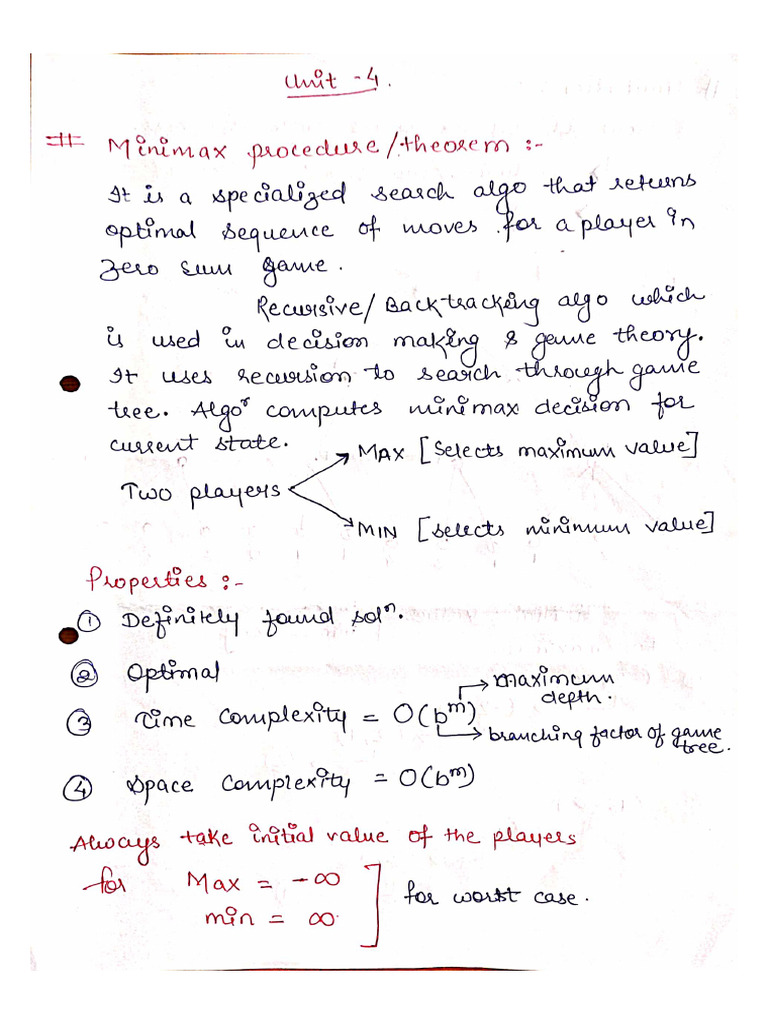 Unit - 4.
# Minimax procedure/theorem :-
It is a specialized search algo that returns
optimal sequence of moves for a player in
zero sum game.
Recursive/Backtracking algo which
is used in decision making & game theory.
It uses recursion to search through game
tree. Algoʳ computes minimax decision for
current state.
MAX [Selects maximum value]
Two players
MIN [selects minimum value]
Properties :-
① Definitely found solⁿ.
② Optimal
maximum
depth.
③ Time Complexity = O(bᵐ)
branching factor of game
tree.
④ Space Complexity = O(bᵐ)
Always take initial value of the players
for Max = -∞
min = ∞
for worst case.